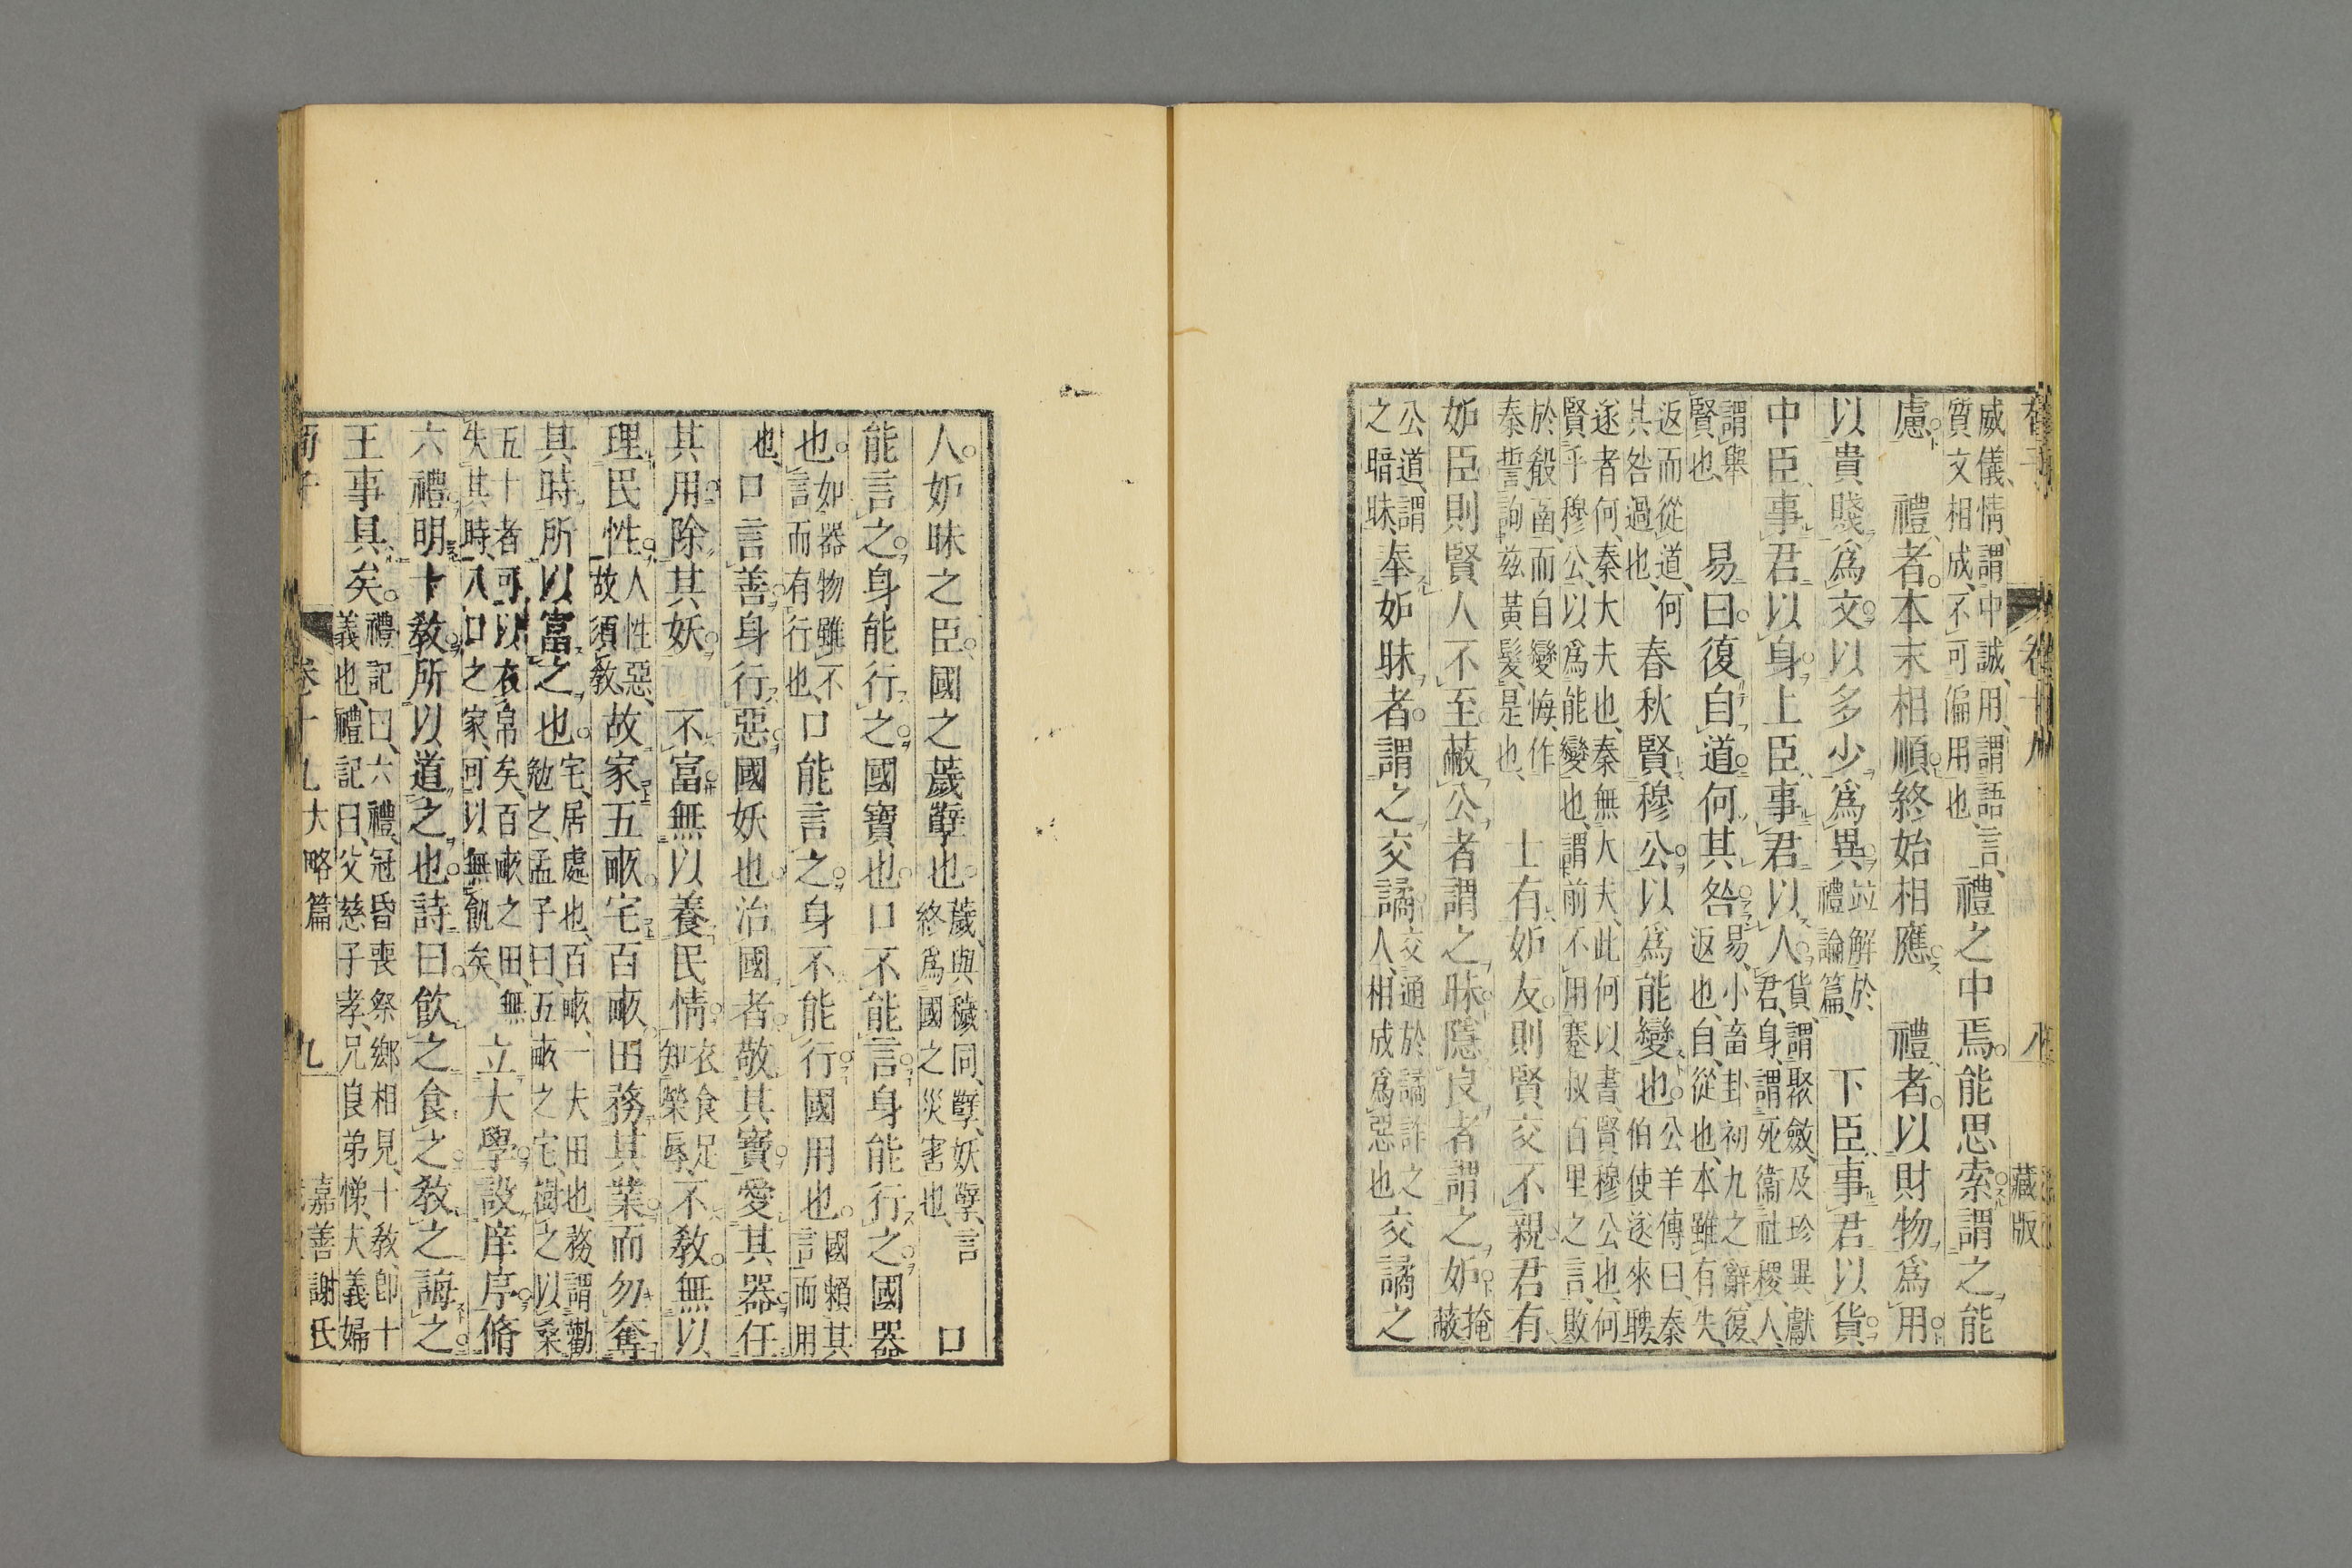 卷十九
藏版
威儀、情、謂中誠、用、謂語言、
質文相成、不可偏用也、
禮之中焉。能思索。謂之能
慮。　禮者。本末相順。終始相應。　禮者。以財物爲用。
以貴賤爲文。以多少爲異。
竝解於
禮論篇、
下臣事君以貨。
中臣事君以身。上臣事君以人。
貨、謂聚斂、及珍異獻
君、身、謂死衞社稷、人、
謂舉
賢也、
易曰。復自道。何其咎。
易、小畜卦初九之辭、復、
返也、自、從也、本雖有失、
返而從道、何
其咎過也、
春秋賢穆公。以爲能變也。
公羊傳曰、秦
伯使遂來聘、
遂者何、秦大夫也、秦無大夫、此何以書、賢穆公也、何
賢乎穆公、以爲能變也、謂前不用蹇叔百里之言、敗
於殽函、而自變悔、作
秦誓、詢茲黃髮、是也、
士有妒友。則賢交不親。君有
妒臣。則賢人不至。蔽公者謂之昧。隱良者謂之妒。
掩
蔽
公道、謂
之暗昧、
奉妒昧者。謂之交譎。
交通於譎詐之
人、相成爲惡也
交譎之
人。妒昧之臣。國之薉孽也。
薉、與穢同、孽、妖孽、言
終爲國之災害也、
口
能言之。身能行之。國寶也。口不能言。身能行之。國器
也。
如器物雖不
言而有行也、
口能言之。身不能行。國用也。
國賴其
言而用
也、
口言善。身行惡。國妖也。治國者。敬其寶。愛其器。任
其用。除其妖。　不富。無以養民情。
衣食足
知榮辱、
不敎。無以
理民性。
人性惡、
故須敎、
故家五畝宅。百畝田。務其業。而勿奪
其時。所以富之也。
宅、居處也、百畝、一夫田也、務、謂勸
勉之、孟子曰、五畝之宅、樹之以桑
五十者可以衣帛矣、百畝之田、無
失其時、八口之家、可以無飢矣、
立大學。設庠序。脩
六禮。明十敎。所以道之也。詩曰。飮之食之。敎之誨之。
王事具矣。
禮記曰、六禮、冠昏喪祭鄕相見、十敎、卽十
義也、禮記曰、父慈子孝、兄良弟悌、夫義婦
荀子
卷十九大略篇
九
嘉善謝氏